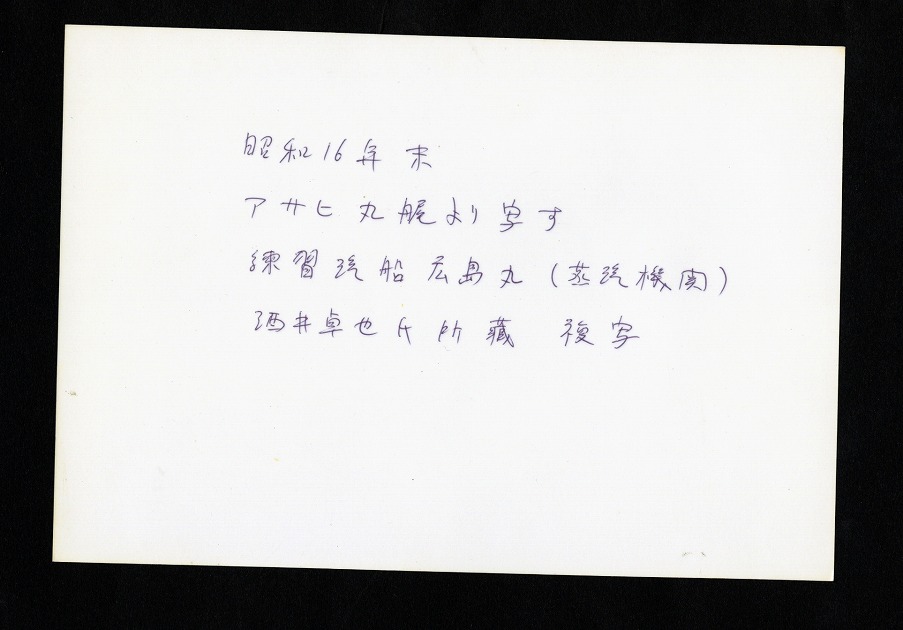 昭和16年末
アサヒ丸艉より写す
練習汽船広島丸（蒸汽機関）
酒井卓也氏所蔵　複写